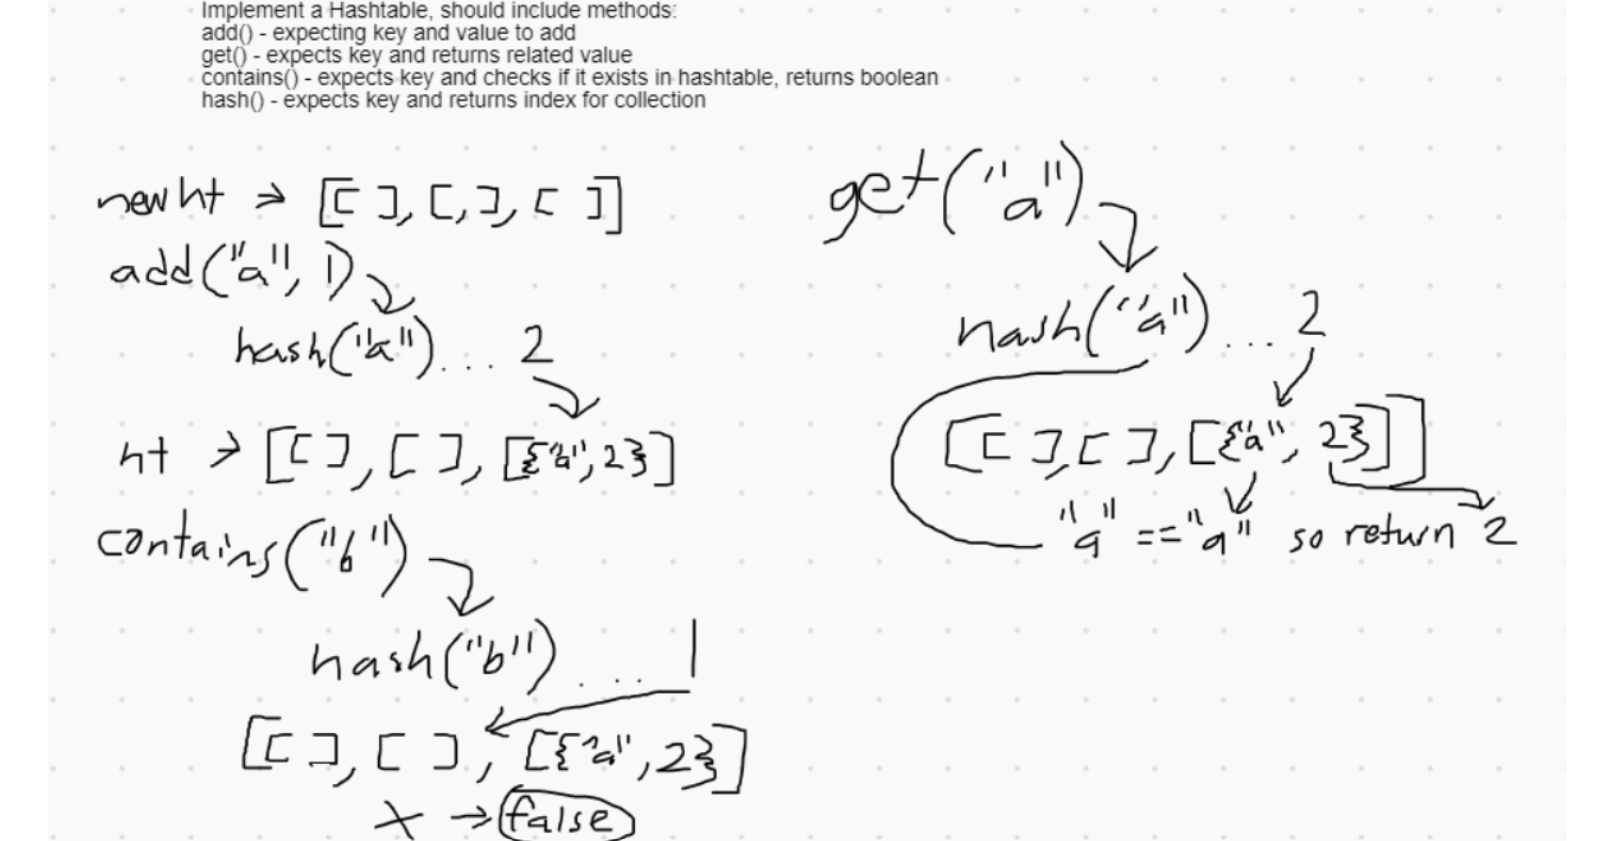 Implement a Hashtable, should include methods:
add() - expecting key and value to add
get() - expects key and returns related value
contains() - expects key and checks if it exists in hashtable, returns boolean
hash() - expects key and returns index for collection
new ht → [[ ], [,], [ ]]
add("a", 1)
hash("a") ... 2
ht → [[ ], [ ], [{"a", 2}]
contains("b")
hash("b") ... 1
[[ ], [ ], [{"a", 2}]
x → false
get("a")
hash("a") ... 2
[[ ], [ ], [{"a", 2}]]
"a" == "a" so return 2